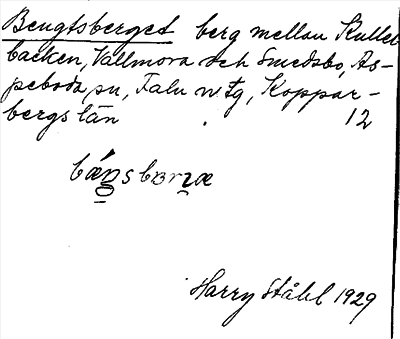 Bengtsberget berg mellan Kulle
backen, Vallmora och Smedsbo, As-
peboda sn, Falu n. tg, Koppar-
bergs län 12
Harry Ståhl 1929